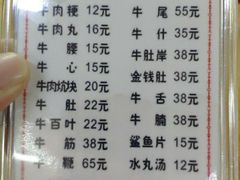 牛肉梗 12元
牛肉丸 16元
牛腰 15元
牛心 15元
牛肉炕块 20元
牛肚 22元
牛百叶 22元
牛筋 38元
牛鞭 65元
牛尾 55元
牛什 35元
牛肚岸 38元
金钱肚 38元
牛舌 38元
牛腩 38元
鲨鱼片 15元
水丸汤 12元